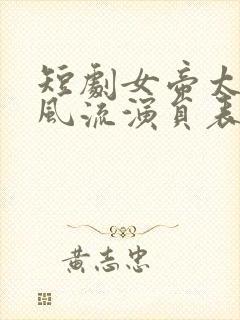 短劇女帝太
風流演員表
黃志忠